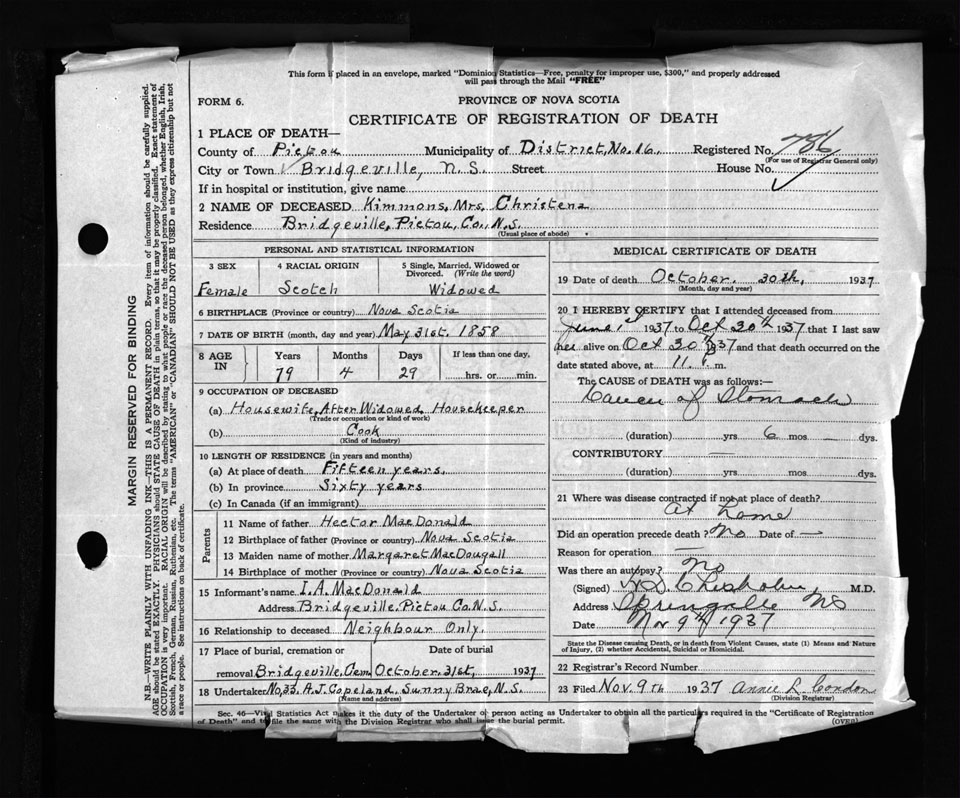 This form if placed in an envelope, marked "Dominion Statistics—Free, penalty for improper use, $300," and properly addressed
will pass through the Mail "FREE"
FORM 6.
PROVINCE OF NOVA SCOTIA
CERTIFICATE OF REGISTRATION OF DEATH
1 PLACE OF DEATH—
County of Pictou Municipality of District, No. 16. Registered No. 786
(For use of Registrar General only)
City or Town Bridgeville, N.S. Street House No.
If in hospital or institution, give name
2 NAME OF DECEASED Kimmons, Mrs. Christena
Residence Bridgeville, Pictou, Co., N.S.
(Usual place of abode)
PERSONAL AND STATISTICAL INFORMATION
3 SEX
Female
4 RACIAL ORIGIN
Scotch
5 Single, Married, Widowed or
Divorced. (Write the word)
Widowed
6 BIRTHPLACE (Province or country) Nova Scotia
7 DATE OF BIRTH (month, day and year) May 31st, 1858
8 AGE IN
Years Months Days If less than one day,
79 4 29 hrs. or min.
9 OCCUPATION OF DECEASED
(a) Housewife, After Widowed, Housekeeper
(Trade or occupation or kind of work)
(b) Cook
(Kind of industry)
10 LENGTH OF RESIDENCE (in years and months)
(a) At place of death Fifteen years.
(b) In province Sixty years
(c) In Canada (if an immigrant)
Parents
11 Name of father Hector MacDonald
12 Birthplace of father (Province or country) Nova Scotia
13 Maiden name of mother Margaret MacDougall
14 Birthplace of mother (Province or country) Nova Scotia
15 Informant's name I. A. MacDonald
Address Bridgeville, Pictou Co. N.S.
16 Relationship to deceased Neighbour Only.
17 Place of burial, cremation or Date of burial
removal Bridgeville, Cem. October, 31st, 1937
18 Undertaker No, 33. A.J. Copeland, Sunny Brae, N.S.
(Name and address)
MEDICAL CERTIFICATE OF DEATH
19 Date of death October. 30th, 1937
(Month, day and year)
20 I HEREBY CERTIFY that I attended deceased from
June 1st 1937 to Oct 30th 1937 that I last saw
her alive on Oct 30th 1937 and that death occurred on the
date stated above, at 11 P. m.
The CAUSE OF DEATH was as follows:—
Cancer of Stomach
(duration) yrs 6 mos — dys.
CONTRIBUTORY —
(duration) yrs. mos. dys.
21 Where was disease contracted if not at place of death?
At home
Did an operation precede death? No Date of —
Reason for operation —
Was there an autopsy? No
(Signed) Chisholm, M.D.
Address Springville NS
Date Nov 9th 1937
State the Disease causing Death, or in Death from Violent Causes, state (1) Means and Nature
of Injury, (2) whether Accidental, Suicidal or Homicidal.
22 Registrar's Record Number
23 Filed Nov. 9th 1937 Annie L. Condon
(Division Registrar)
Sec. 46—Vital Statistics Act makes it the duty of the Undertaker or person acting as Undertaker to obtain all the particulars required in the "Certificate of Registration
of Death" and to file the same with the Division Registrar who shall issue the burial permit. (OVER)
MARGIN RESERVED FOR BINDING
N.B.—WRITE PLAINLY WITH UNFADING INK—THIS IS A PERMANENT RECORD. Every item of information should be carefully supplied.
AGE should be stated EXACTLY. PHYSICIANS should STATE CAUSE OF DEATH in plain terms, so that it may be properly classified. Exact statement of
OCCUPATION is very important. RACIAL ORIGIN will be described by stating to what people or race the deceased person belonged, whether English, Irish,
Scottish, French, German, Russian, Ruthenian, etc. The terms "AMERICAN" or "CANADIAN" SHOULD NOT BE USED as they express citizenship but not
a race or people. See instructions on back of certificate.